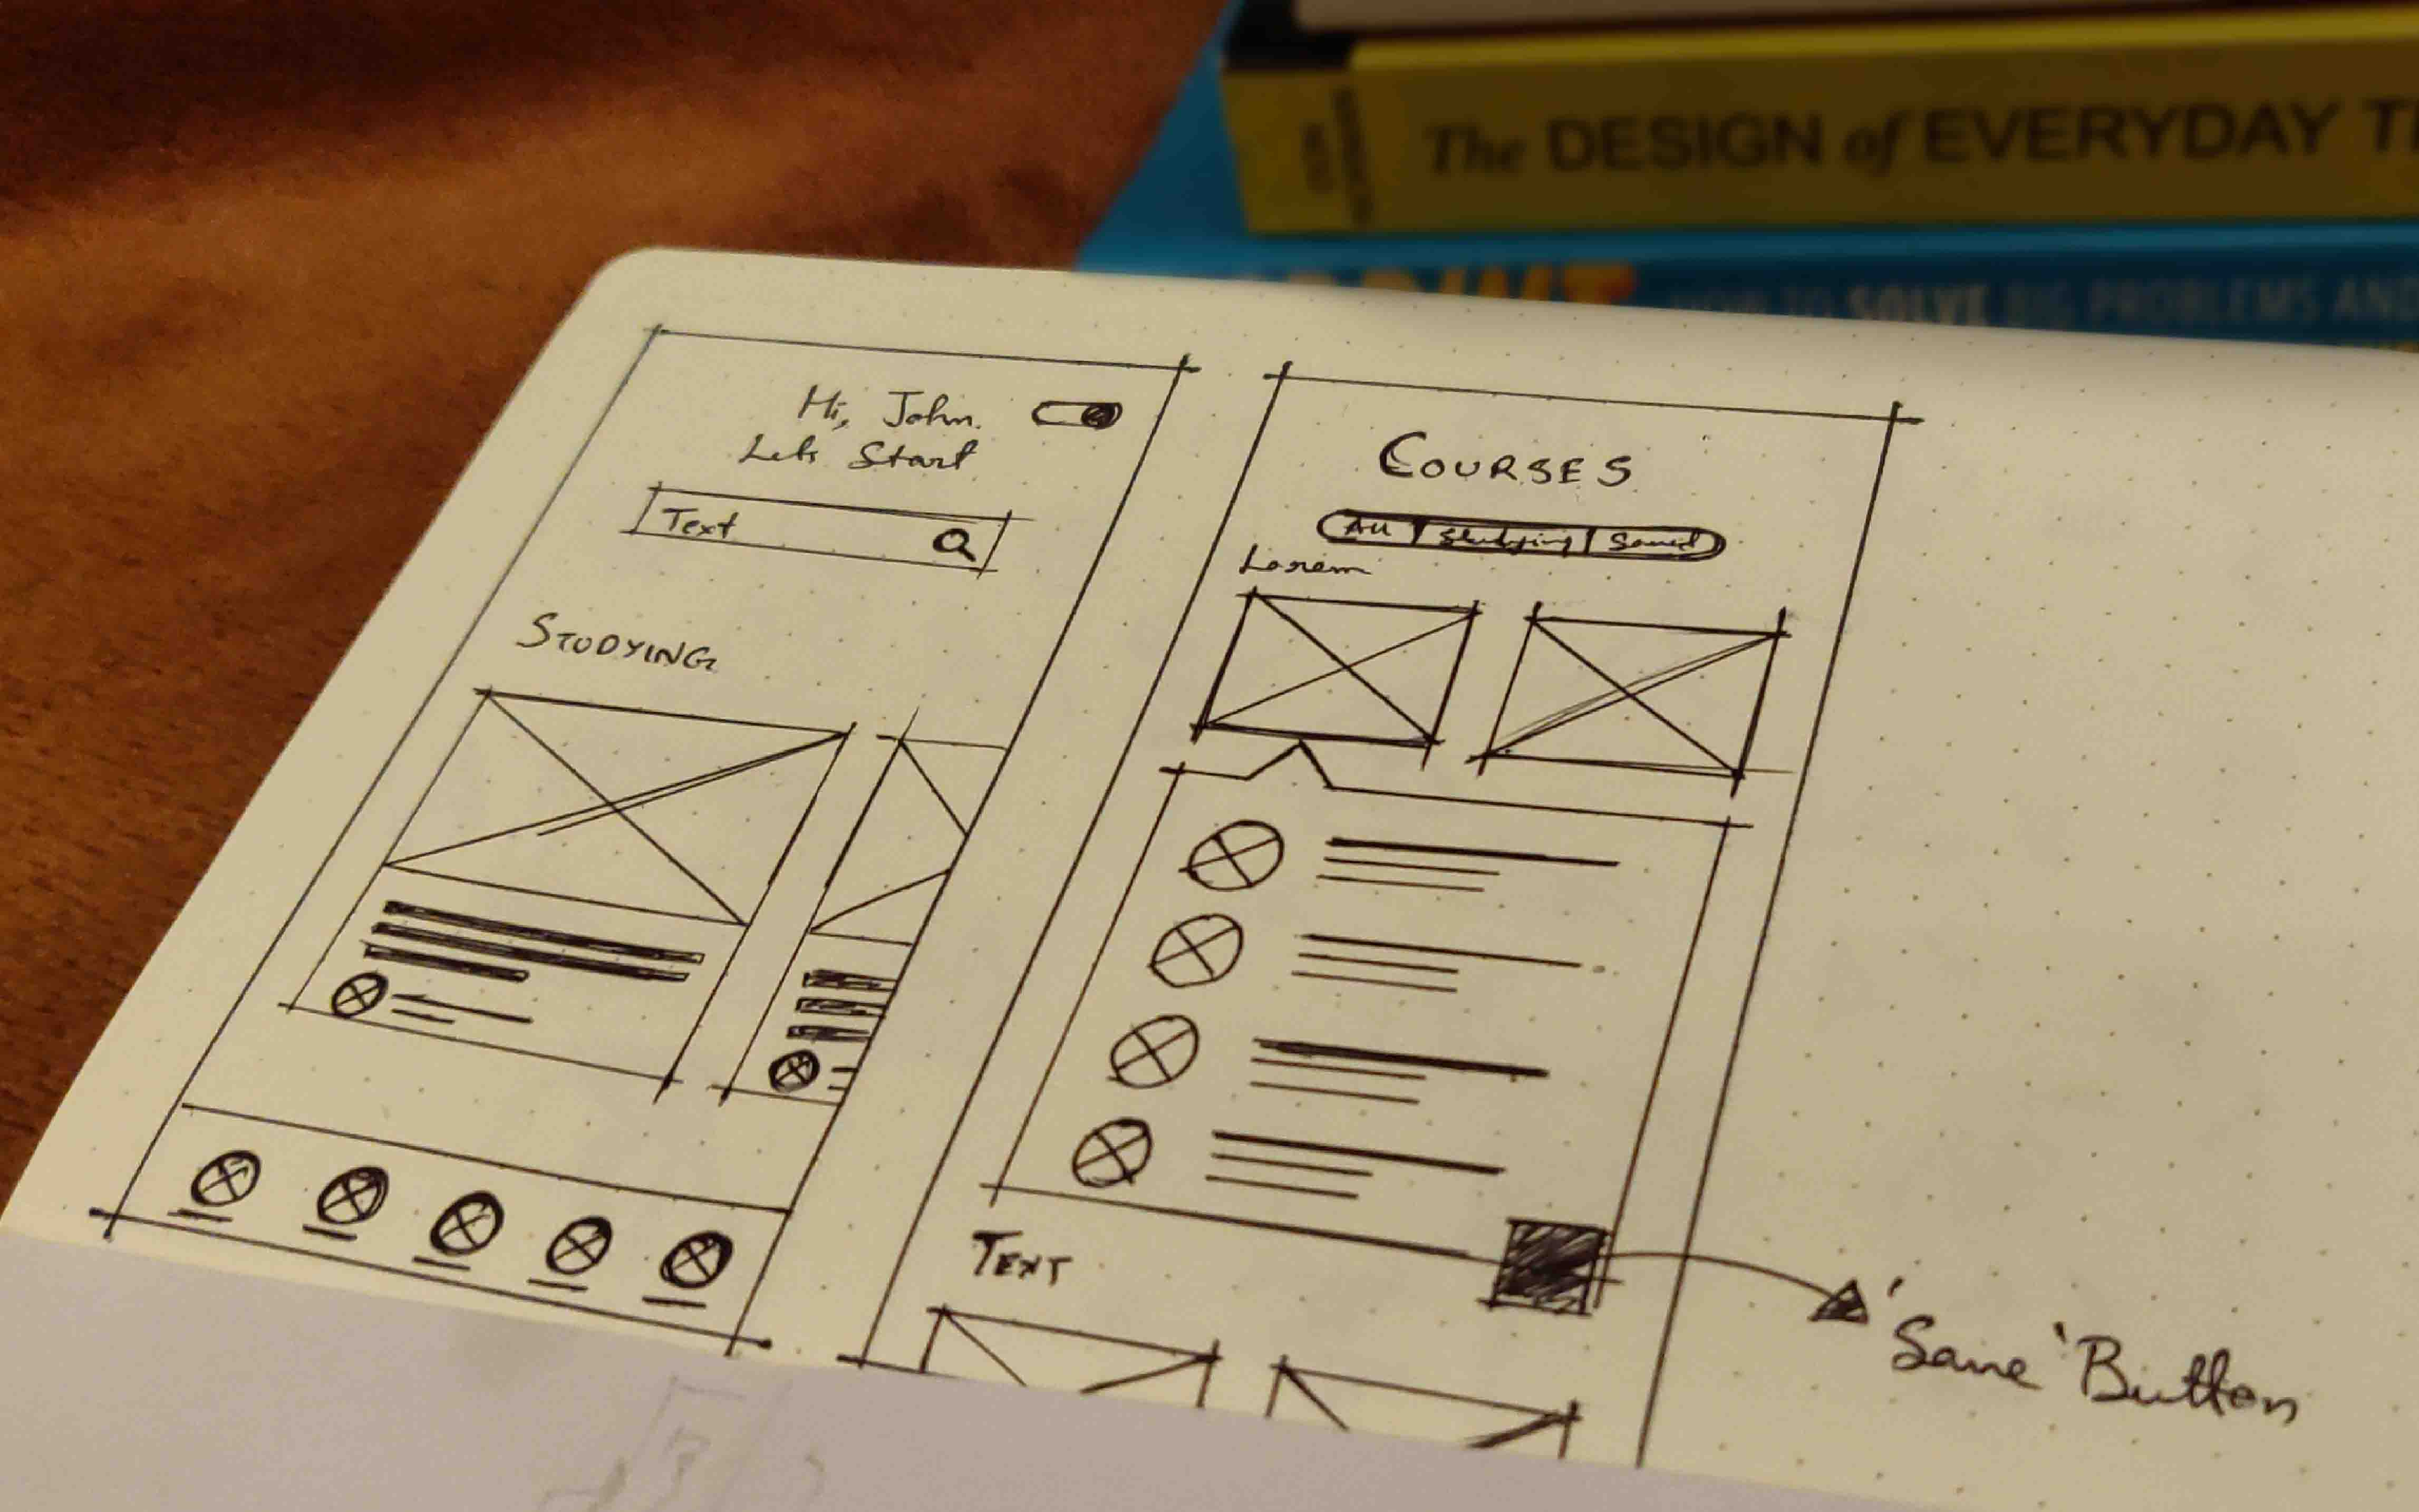 The DESIGN of EVERYDAY
HOW TO SOLVE BIG PROBLEMS AND
Hi, John.
Lets Start
Text
STUDYING
COURSES
All Studying Saved
Lorem
TEXT
'Save' Button